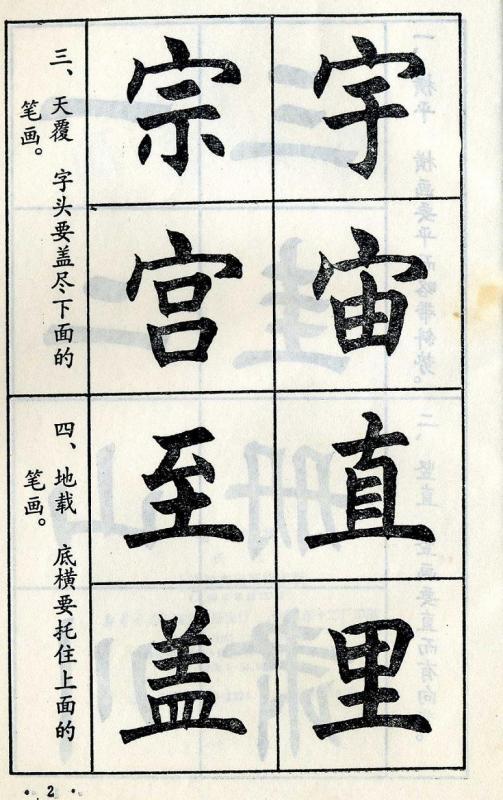 宇宙直里
宗宫至盖
三、天覆 字头要盖尽下面的
笔画。
四、地载 底横要托住上面的
笔画。
· 2 ·